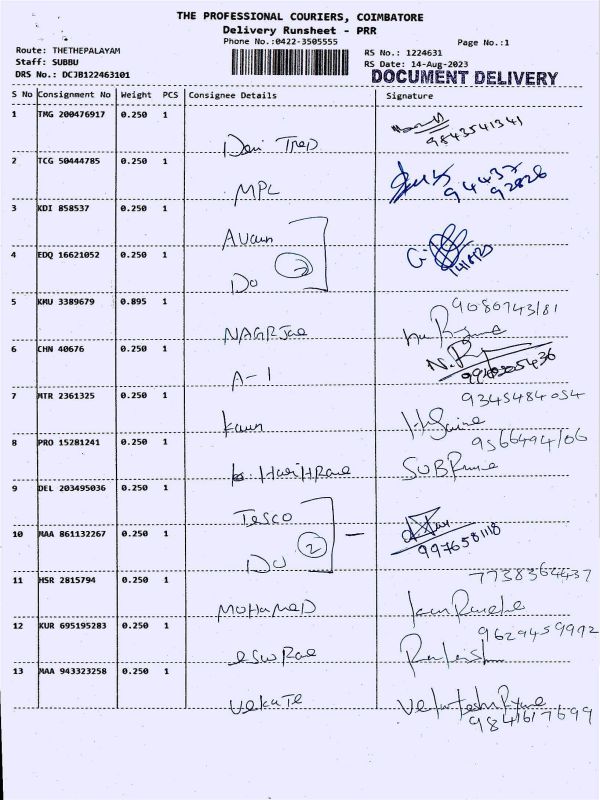 THE PROFESSIONAL COURIERS, COIMBATORE
Delivery Runsheet - PRR
Phone No.:0422-3505555
Page No.:1
Route: THETHEPALAYAM
RS No.: 1224631
Staff: SUBBU
RS Date: 14-Aug-2023
DRS No.: DCJB122463101
DOCUMENT DELIVERY
S No Consignment No Weight PCS Consignee Details Signature
1 TMG 200476917 0.250 1
9843541341
2 TCG 50444785 0.250 1
MPL
94437
92826
3 KDI 858537 0.250 1
4 EDQ 16621052 0.250 1
2
DO
5 KMU 3389679 0.895 1
9080743181
6 CHN 40676 0.250 1
A-1
7 MTR 2361325 0.250 1
9345484054
8 PRO 15281241 0.250 1
9566494106
9 DEL 203495036 0.250 1
TESCO
10 MAA 861132267 0.250 1
DO 2 -
9976581118
11 HSR 2815794 0.250 1
7738364437
MOHAMED
12 KUR 695195283 0.250 1
9629459992
13 MAA 943323258 0.250 1
9841617699